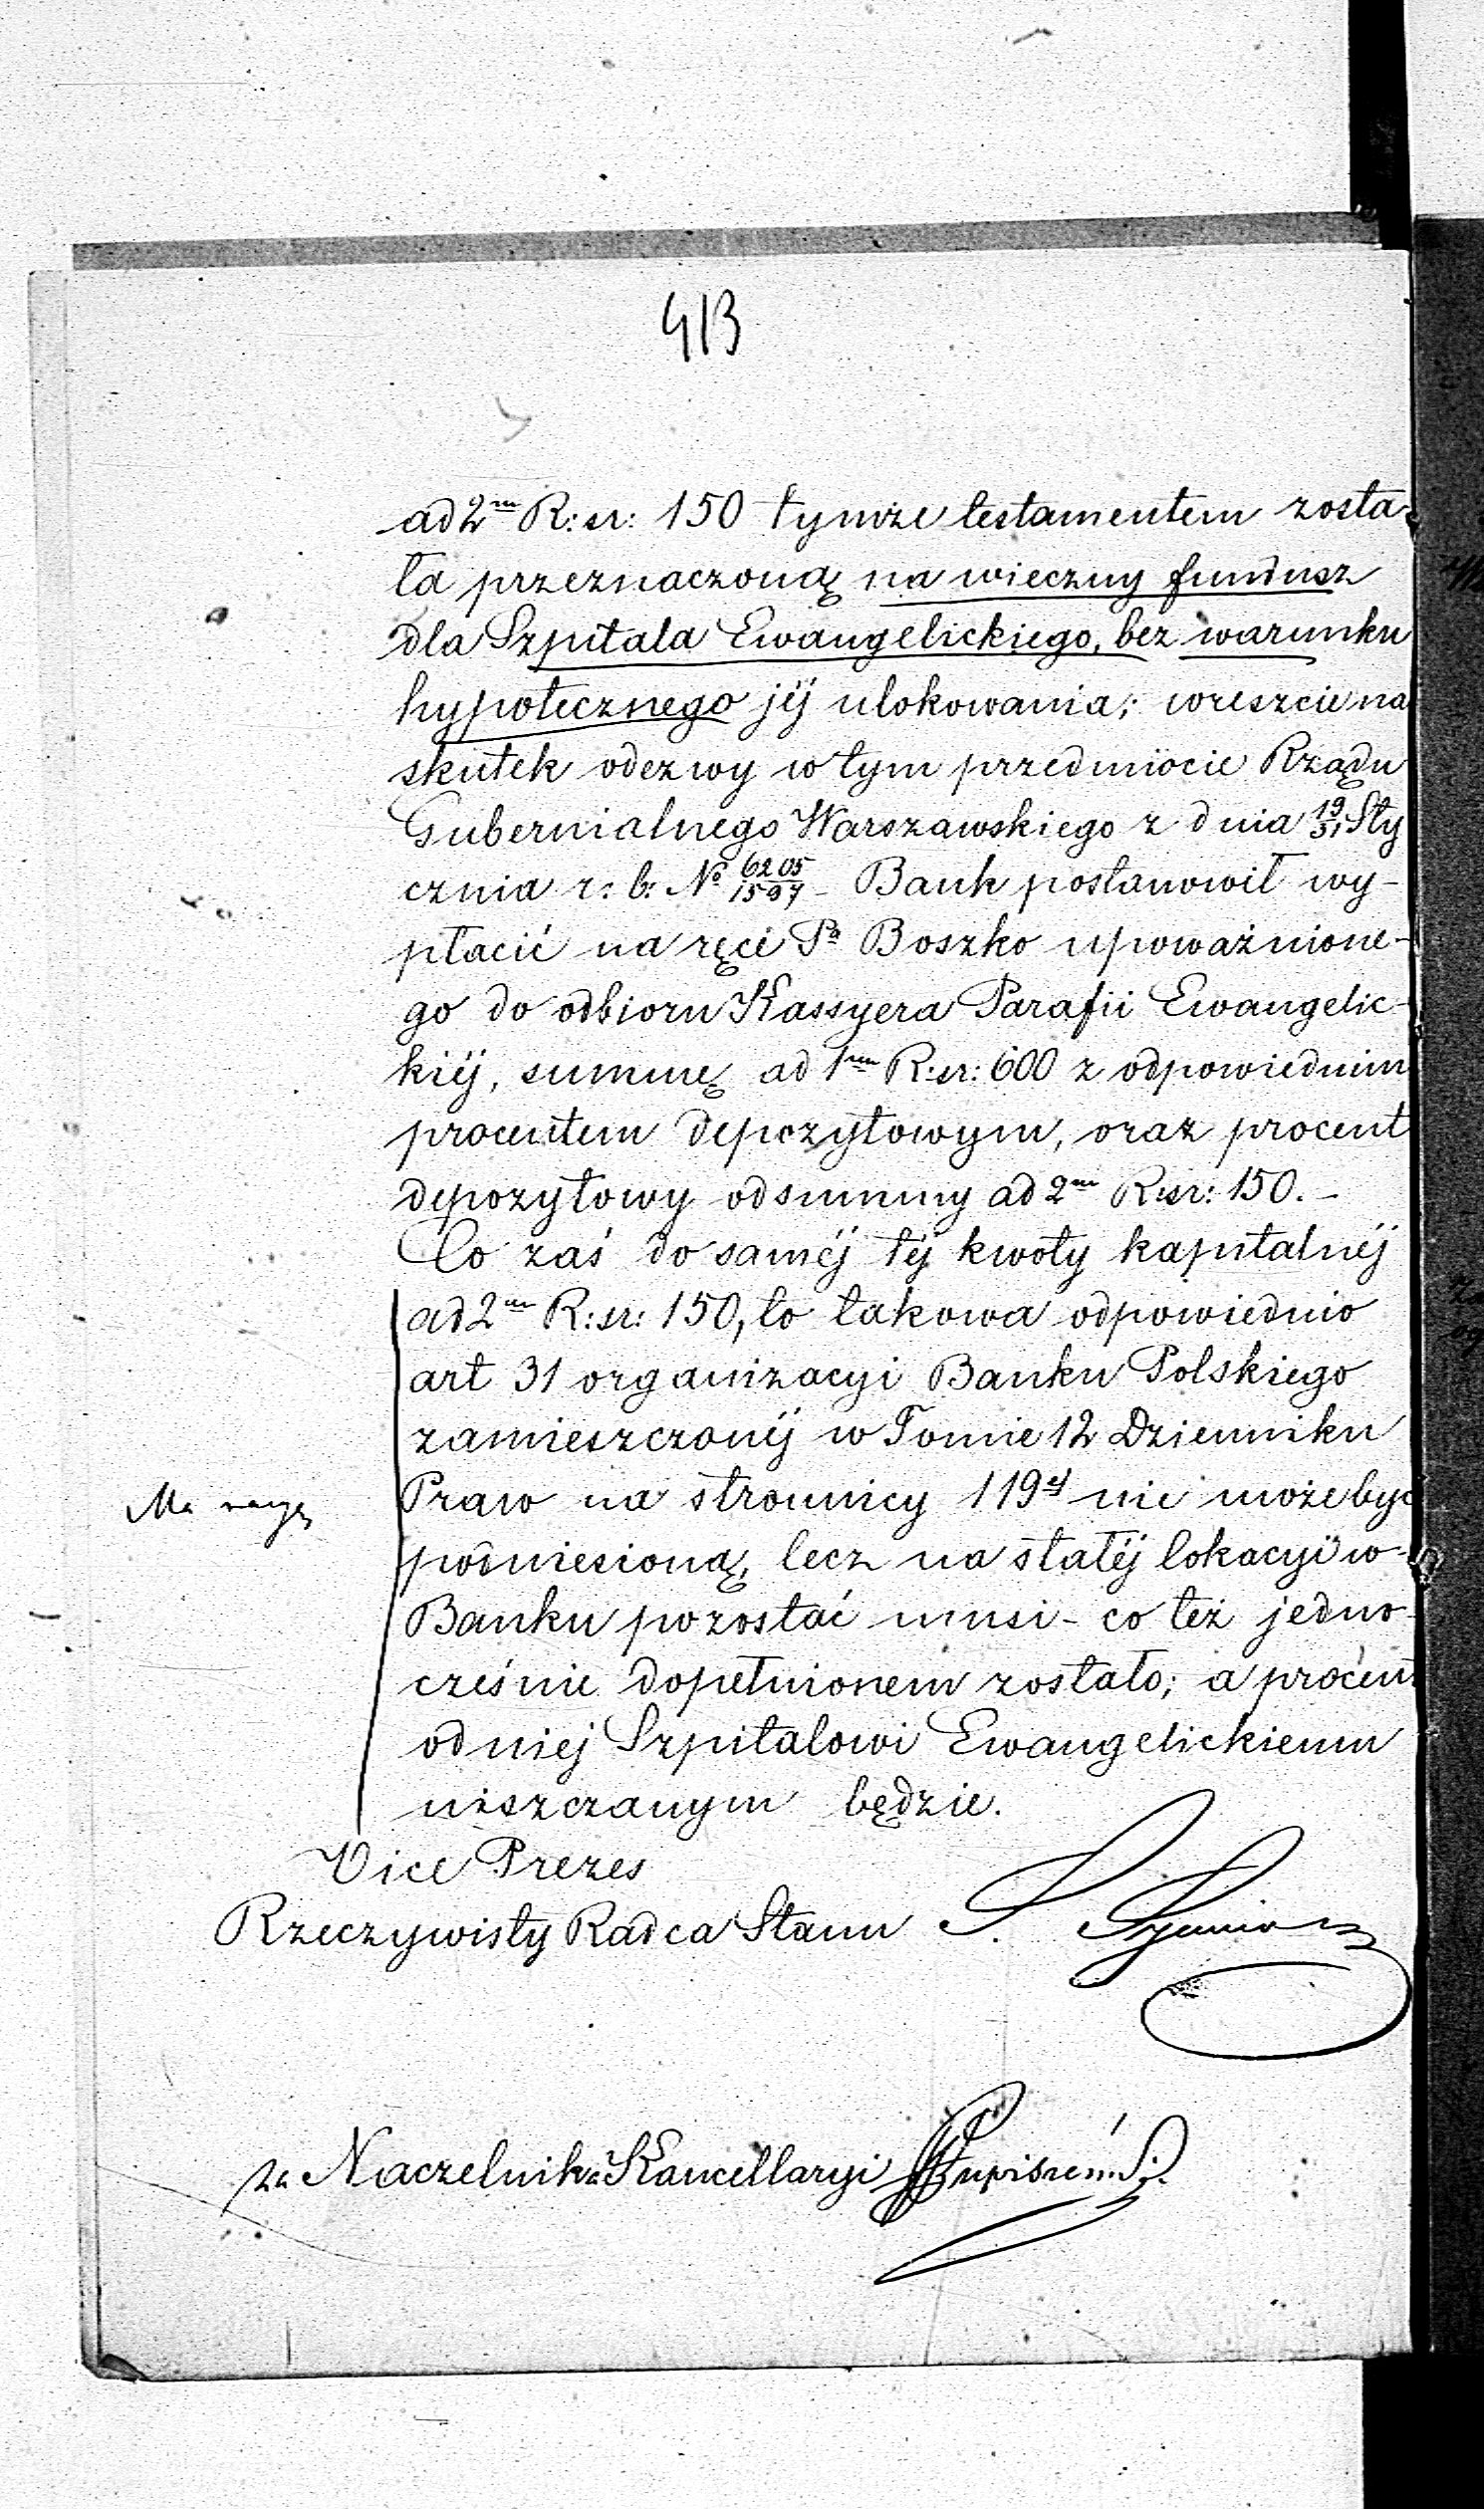 413
ad 2m R: sr: 150 tymże testamentem zosta-
ła przeznaczoną na wieczny fundusz
dla Szpitala Ewangelickiego, bez warunku
hypotecznego jéj ulokowania; wreszcie na
skutek odezwy w tym przedmiocie Rządu
Gubernialnego Warszawskiego z dnia 19/31 Sty
cznia r: b: No 6205/1597 - Bank postanowił wy-
płacić na ręce Pa Boszko upoważnione-
go do odbioru Kassyera Parafii Ewangelic-
kiéj, summę ad 1m R: sr: 600 z odpowiednim
procentem depozytowym, oraz procent
depozytowy od summy ad 2m R: sr: 150. -
Co zaś do saméj téj kwoty kapitalnéj
ad 2m R: sr: 150, to takowa odpowiednio
art 31 organizacyi Banku Polskiego
zamieszczonéj w Tomie 12 Dziennika
Praw na stronnicy 119éj nie może być
podniesioną, lecz na stałéj lokacyi w
Banku pozostać musi - co też jedno-
cześnie dopełnionem zostało; a procent
od niej Szpitalowi Ewangelickiemu
uiszczanym będzie.
Ma racyę
Vice Prezes
Rzeczywisty Radca Stanu
za Naczelnika Kancellaryi